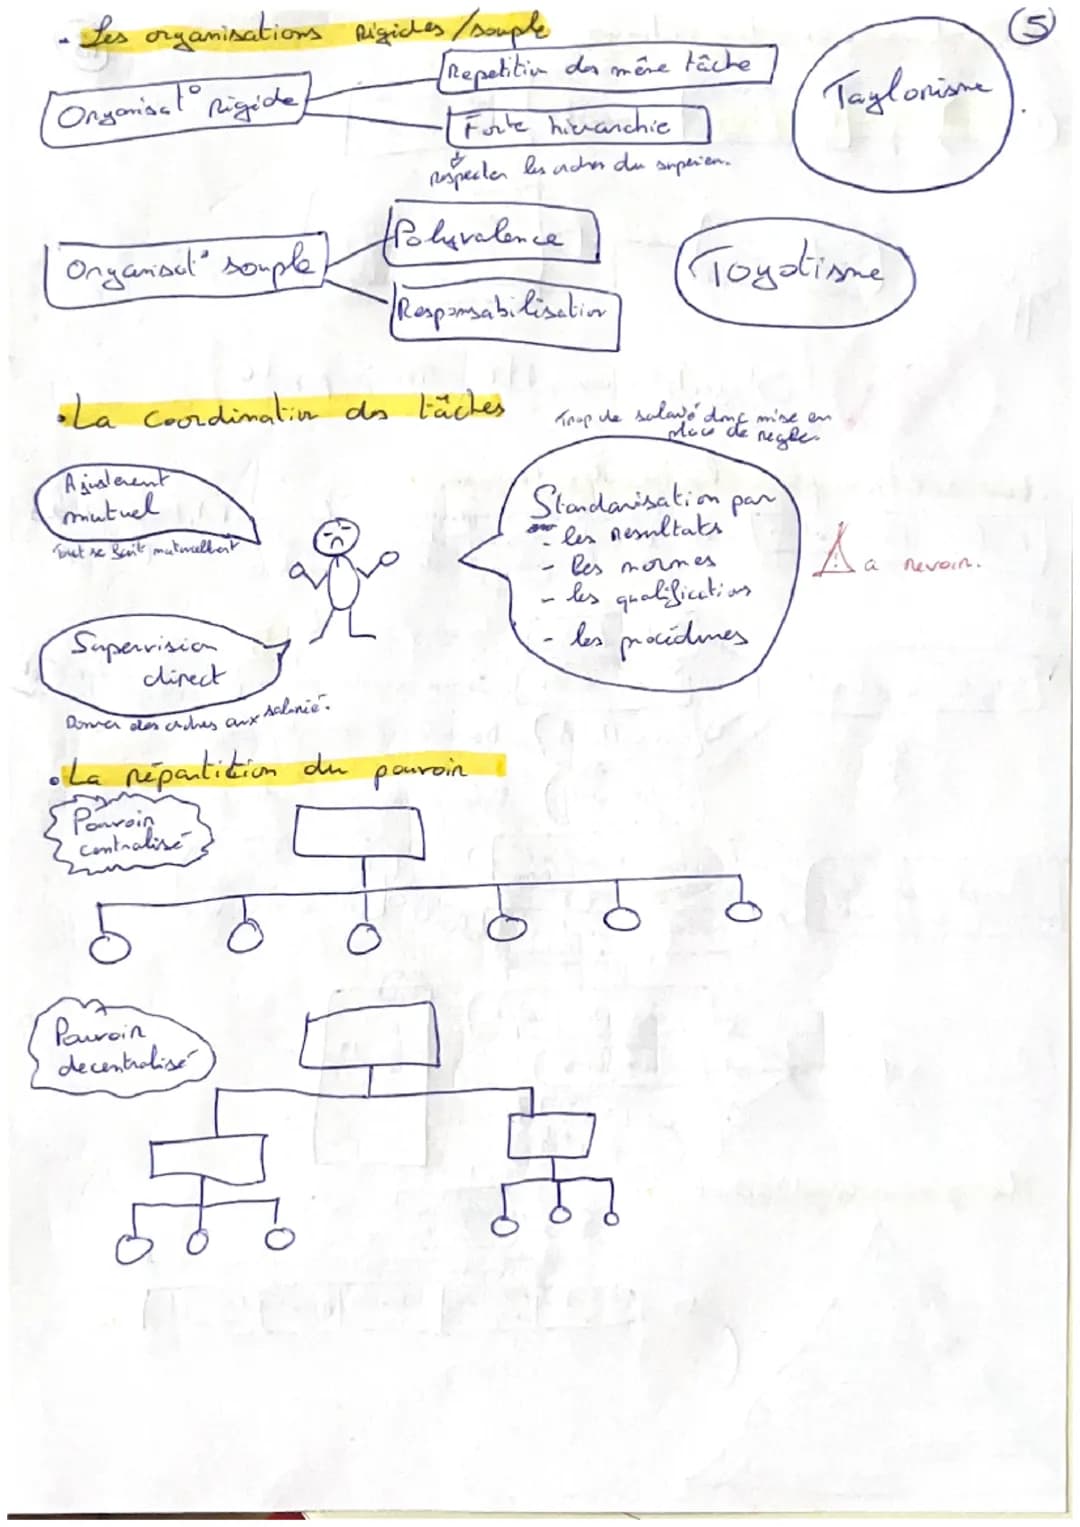 5
- Les organisations Rigides/souple
Organisat° Rigide
Repetition des même tâche
Forte hierarchie
Respecter les ordres du superieur.
Taylorisme
Organisat° souple
Polyvalence
Responsabilisation
Toyotisme
• La coordination des tâches
Trop de salarié donc mise en
place de regle.
Ajustement
mutuel
Tout se fait naturellement
Supervision
direct
Donner des ordres aux salarié.
Standarisation par
- les resultats
- les normes
- les qualifications
- les procédures
! a revoir.
• La répartition du pouvoir
Pouvoir
centralisé
Pouvoir
decentralisé